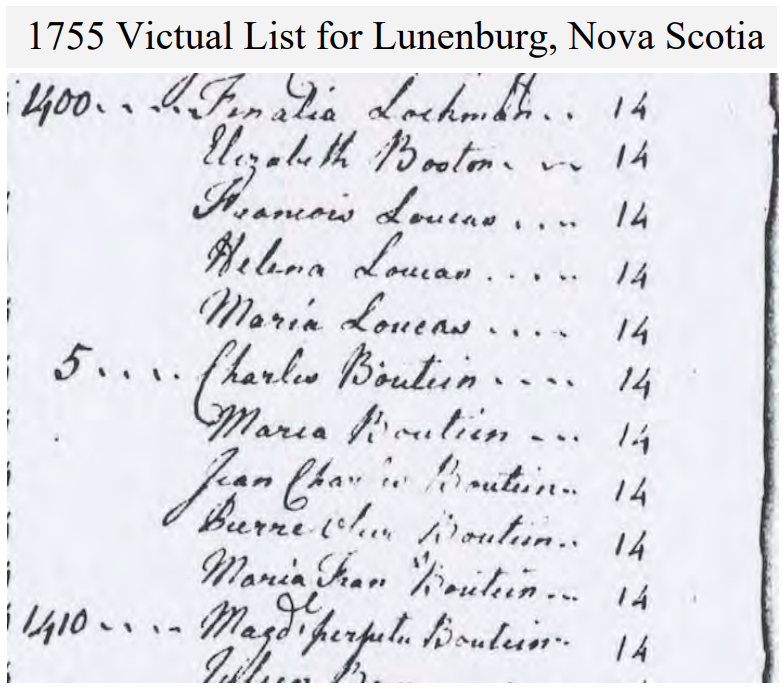 1755 Victual List for Lunenburg, Nova Scotia
1400.....Lochman.. 14
Elizabeth Boston. ~ 14
Francois Loucas .... 14
Helena Loucas .... 14
Maria Loucas .... 14
5.... Charles Boutein .... 14
Maria Boutein --- 14
Jean Charles Boutein.. 14
Boutein.. 14
Maria Fran Boutein... 14
1410.... Magd. perpetu Boutein.. 14